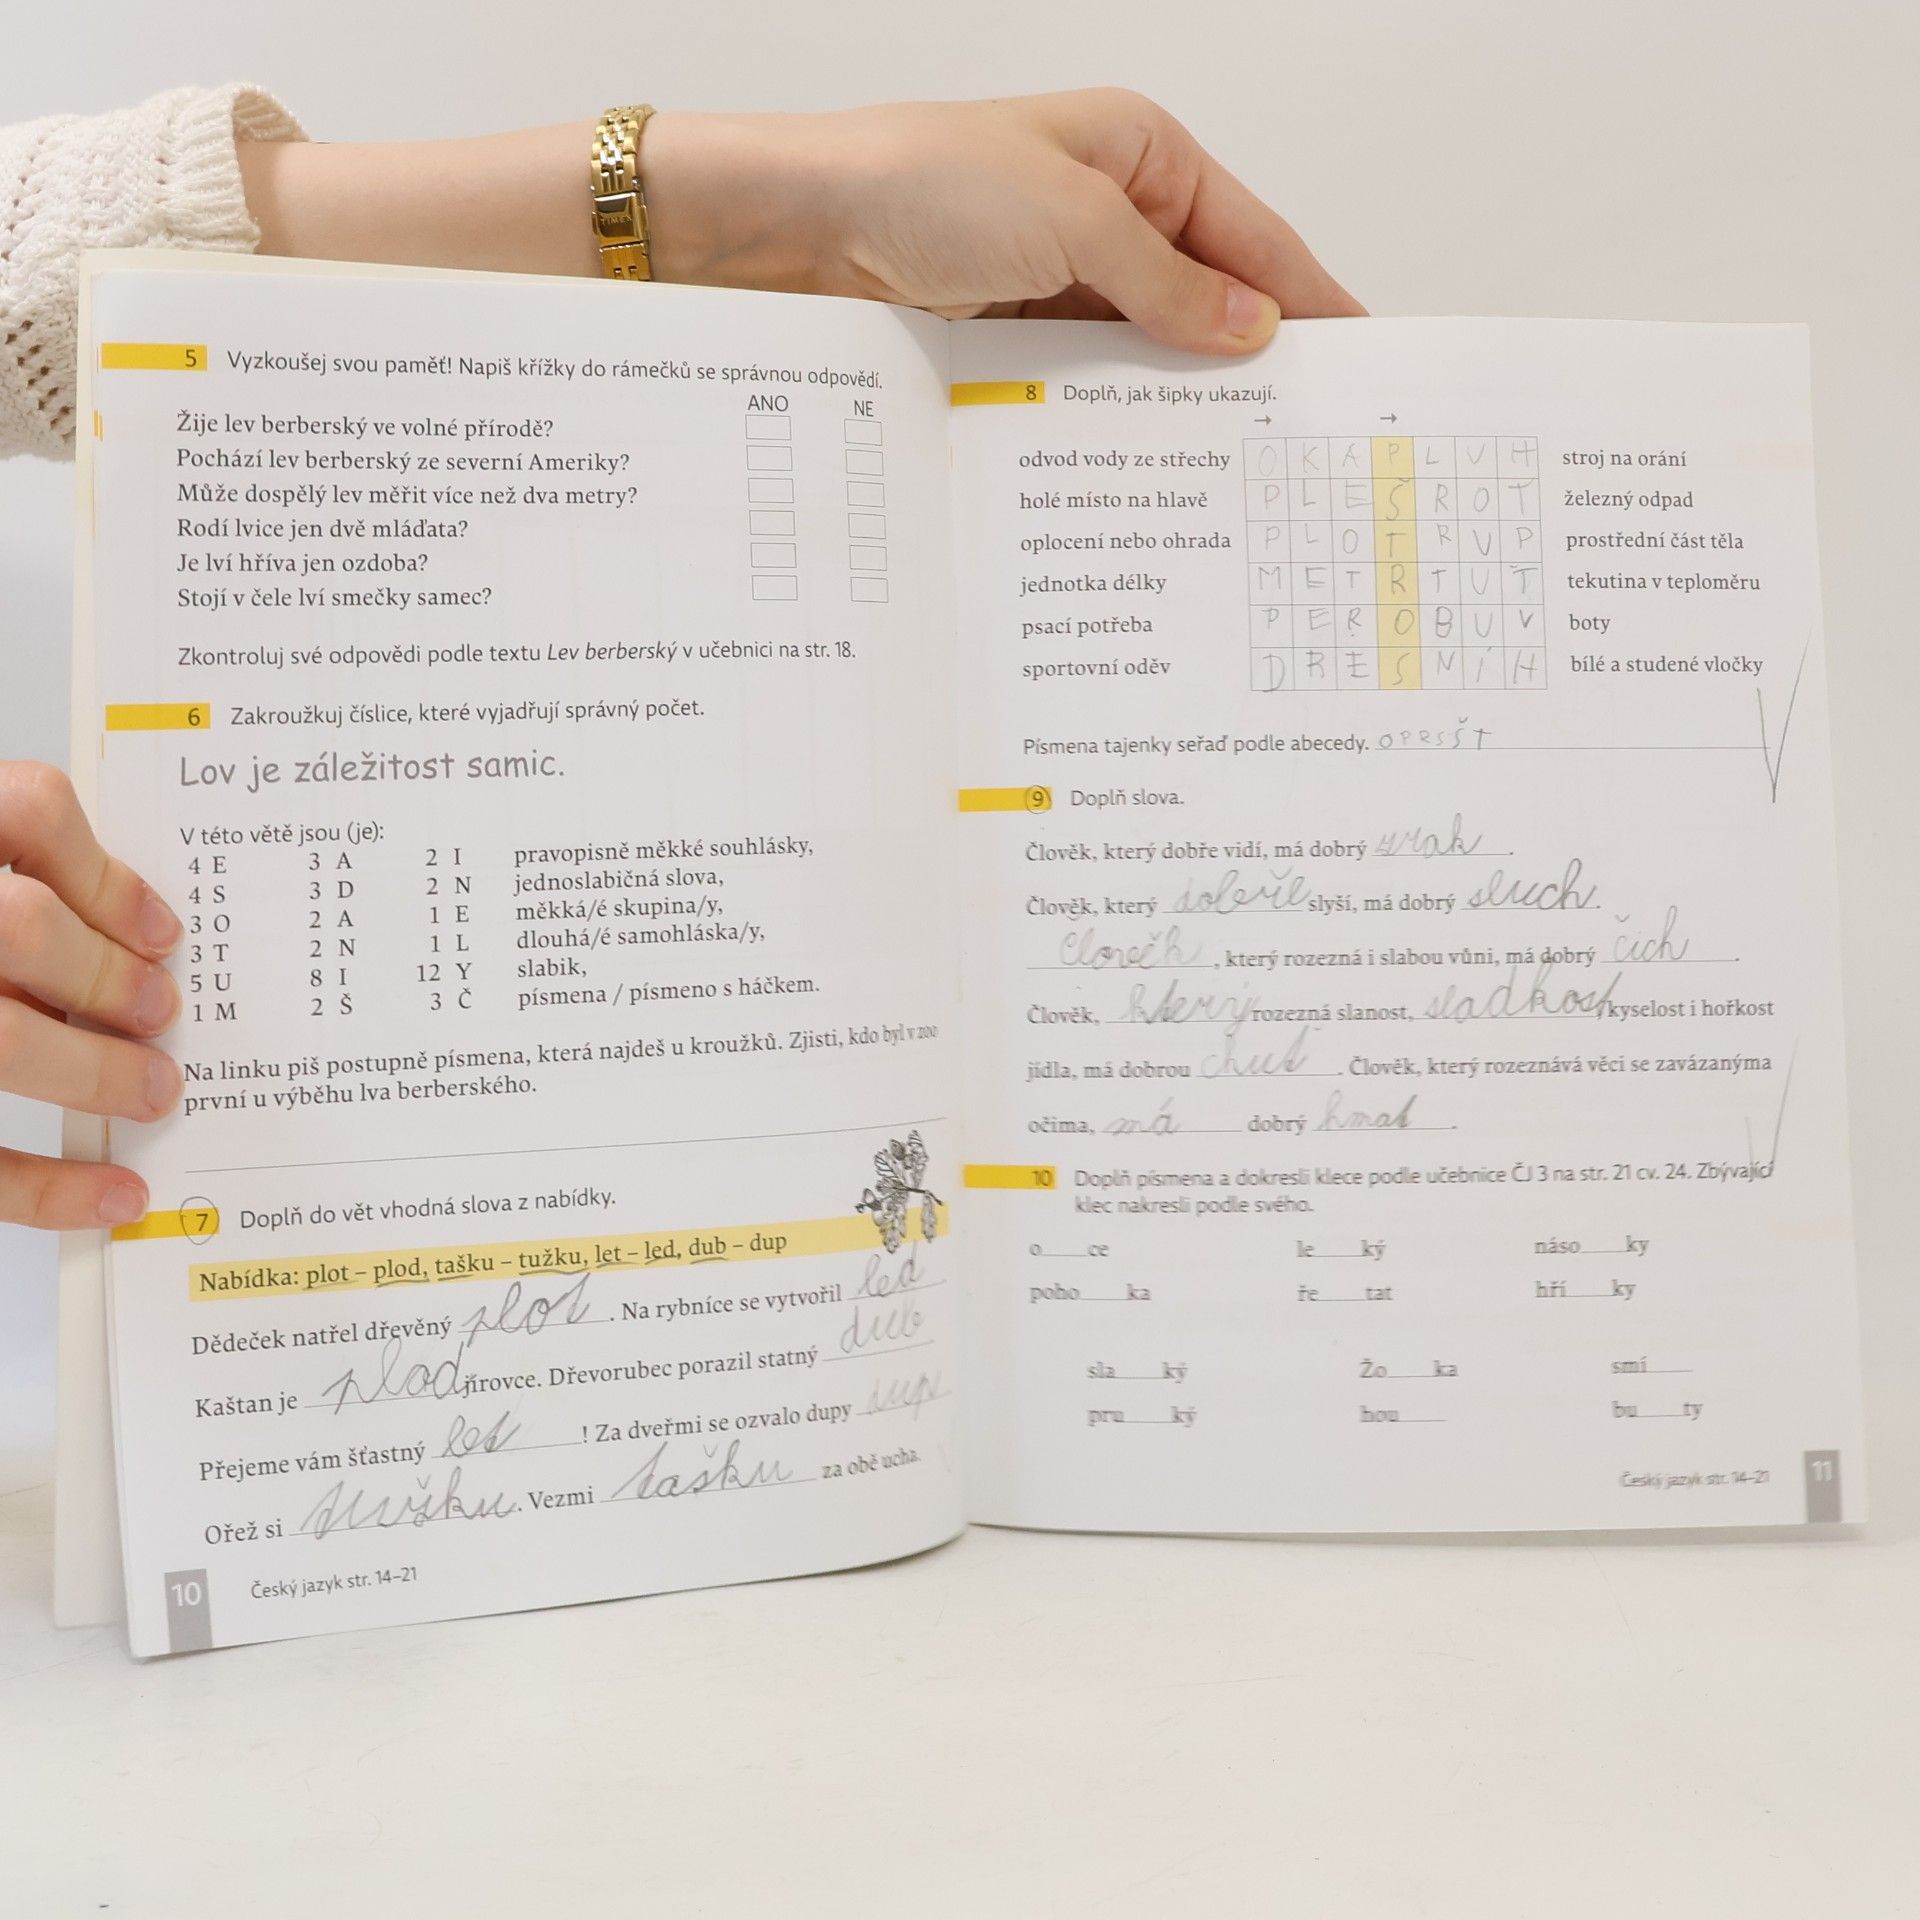 TIMEX
5 Vyzkoušej svou paměť! Napiš křížky do rámečků se správnou odpovědí.
ANO NE
Žije lev berberský ve volné přírodě?
Pochází lev berberský ze severní Ameriky?
Může dospělý lev měřit více než dva metry?
Rodí lvice jen dvě mláďata?
Je lví hříva jen ozdoba?
Stojí v čele lví smečky samec?
Zkontroluj své odpovědi podle textu Lev berberský v učebnici na str. 18.
6 Zakroužkuj číslice, které vyjadřují správný počet.
Lov je záležitost samic.
V této větě jsou (je):
4 E 3 A 2 I pravopisně měkké souhlásky,
4 S 3 D 2 N jednoslabičná slova,
3 O 2 A 1 E měkká/é skupina/y,
3 T 2 N 1 L dlouhá/é samohláska/y,
5 U 8 I 12 Y slabik,
1 M 2 Š 3 Č písmena / písmeno s háčkem.
Na linku piš postupně písmena, která najdeš u kroužků. Zjisti, kdo byl v zoo
první u výběhu lva berberského.
7 Doplň do vět vhodná slova z nabídky.
Nabídka: plot – plod, tašku – tužku, let – led, dub – dup
Dědeček natřel dřevěný plot. Na rybníce se vytvořil led
Kaštan je plod jírovce. Dřevorubec porazil statný dub
Přejeme vám šťastný let! Za dveřmi se ozvalo dupy dup
Ořež si tužku. Vezmi tašku za obě ucha.
10 Český jazyk str. 14–21
8 Doplň, jak šipky ukazují.
→ →
odvod vody ze střechy O K A P L U H stroj na orání
holé místo na hlavě P L E Š R O T železný odpad
oplocení nebo ohrada P L O T R U P prostřední část těla
jednotka délky M E T R T U Ť tekutina v teploměru
psací potřeba P E R O B U V boty
sportovní oděv D R E S N Í H bílé a studené vločky
Písmena tajenky seřaď podle abecedy. O P R S Š T
9 Doplň slova.
Člověk, který dobře vidí, má dobrý zrak.
Člověk, který dobře slyší, má dobrý sluch.
Člověk, který rozezná i slabou vůni, má dobrý čich.
Člověk, který rozezná slanost, sladkost, kyselost i hořkost
jídla, má dobrou chuť. Člověk, který rozeznává věci se zavázanýma
očima, má dobrý hmat.
10 Doplň písmena a dokresli klece podle učebnice ČJ 3 na str. 21 cv. 24. Zbývající
klec nakresli podle svého.
o___ce le___ký náso___ky
poho___ka ře___tat hří___ky
sla___ký Žo___ka smí___
pru___ký hou___ bu___ty
Český jazyk str. 14–21 11